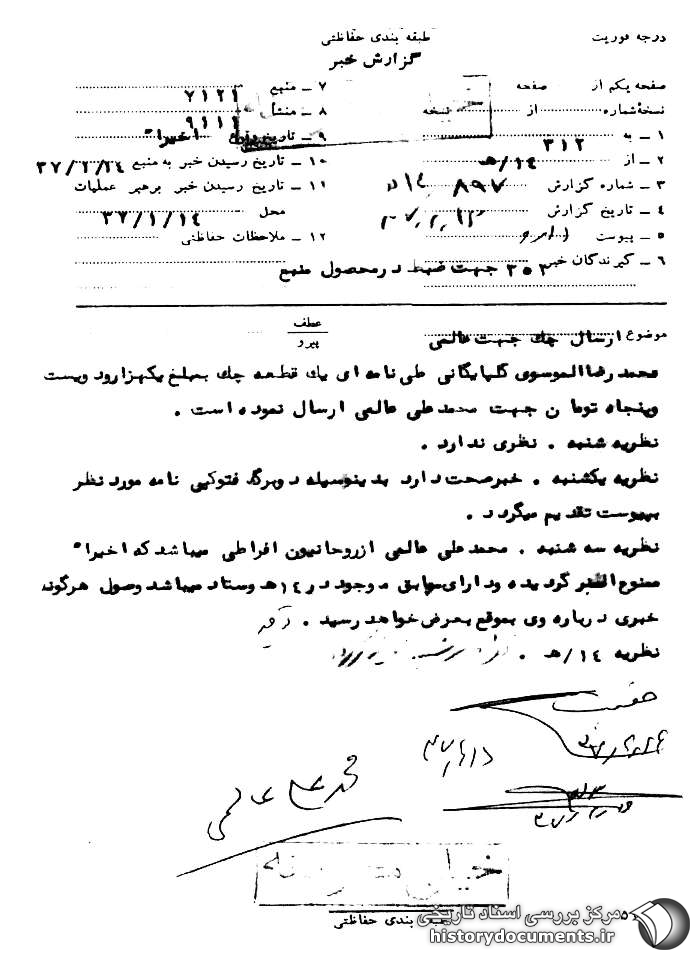 درجه فوریت
طبقه بندی حفاظتی
گزارش خبر
صفحه یکم از صفحه
نسخهٔ شماره از نسخه
۱ – به ۳۱۲
۲ – از ۱۴/هـ
۳ – شماره گزارش ۸۹۷
۴ – تاریخ گزارش
۵ – پیوست دارد
۶ – گیرندگان خبر ۳۵۲ جهت ضبط در محصول منبع
۷ – منبع ۷۱۲۱
۸ – منشأ ۹۱۱۱
۹ – تاریخ وقوع اخیراً
۱۰ – تاریخ رسیدن خبر به منبع
۱۱ – تاریخ رسیدن خبر برهبر عملیات
محل ۳۷/۱/۱۴
۱۲ – ملاحظات حفاظتی
موضوع ارسال چك جهت عالمی
عطف
پیرو
محمد رضا الموسوی گلپایگانی طی نامه ای یك قطعه چك بمبلغ یكهزارو دویست
وپنجاه تومان جهت محمدعلی عالمی ارسال نموده است .
نظریه شنبه . نظری ندارد .
نظریه یكشنبه . خبرصحت دارد بدینوسیله دوبرگ فتوکپی نامه مورد نظر
بپیوست تقدیم میگردد .
نظریه سه شنبه . محمدعلی عالمی ازروحانیون افراطی میباشد كه اخیراً
ممنوع المنبر گردیده ودارای سوابق موجود در ۱۴هـ وستاد میباشد وصول هرگونه
خبری درباره وی بموقع بعرض خواهد رسید .
نظریه ۱۴/هـ .
محمد علی عالمی
خیلی محرمانه
طبقه بندی حفاظتی
مرکز بررسی اسناد تاریخی
historydocuments.ir